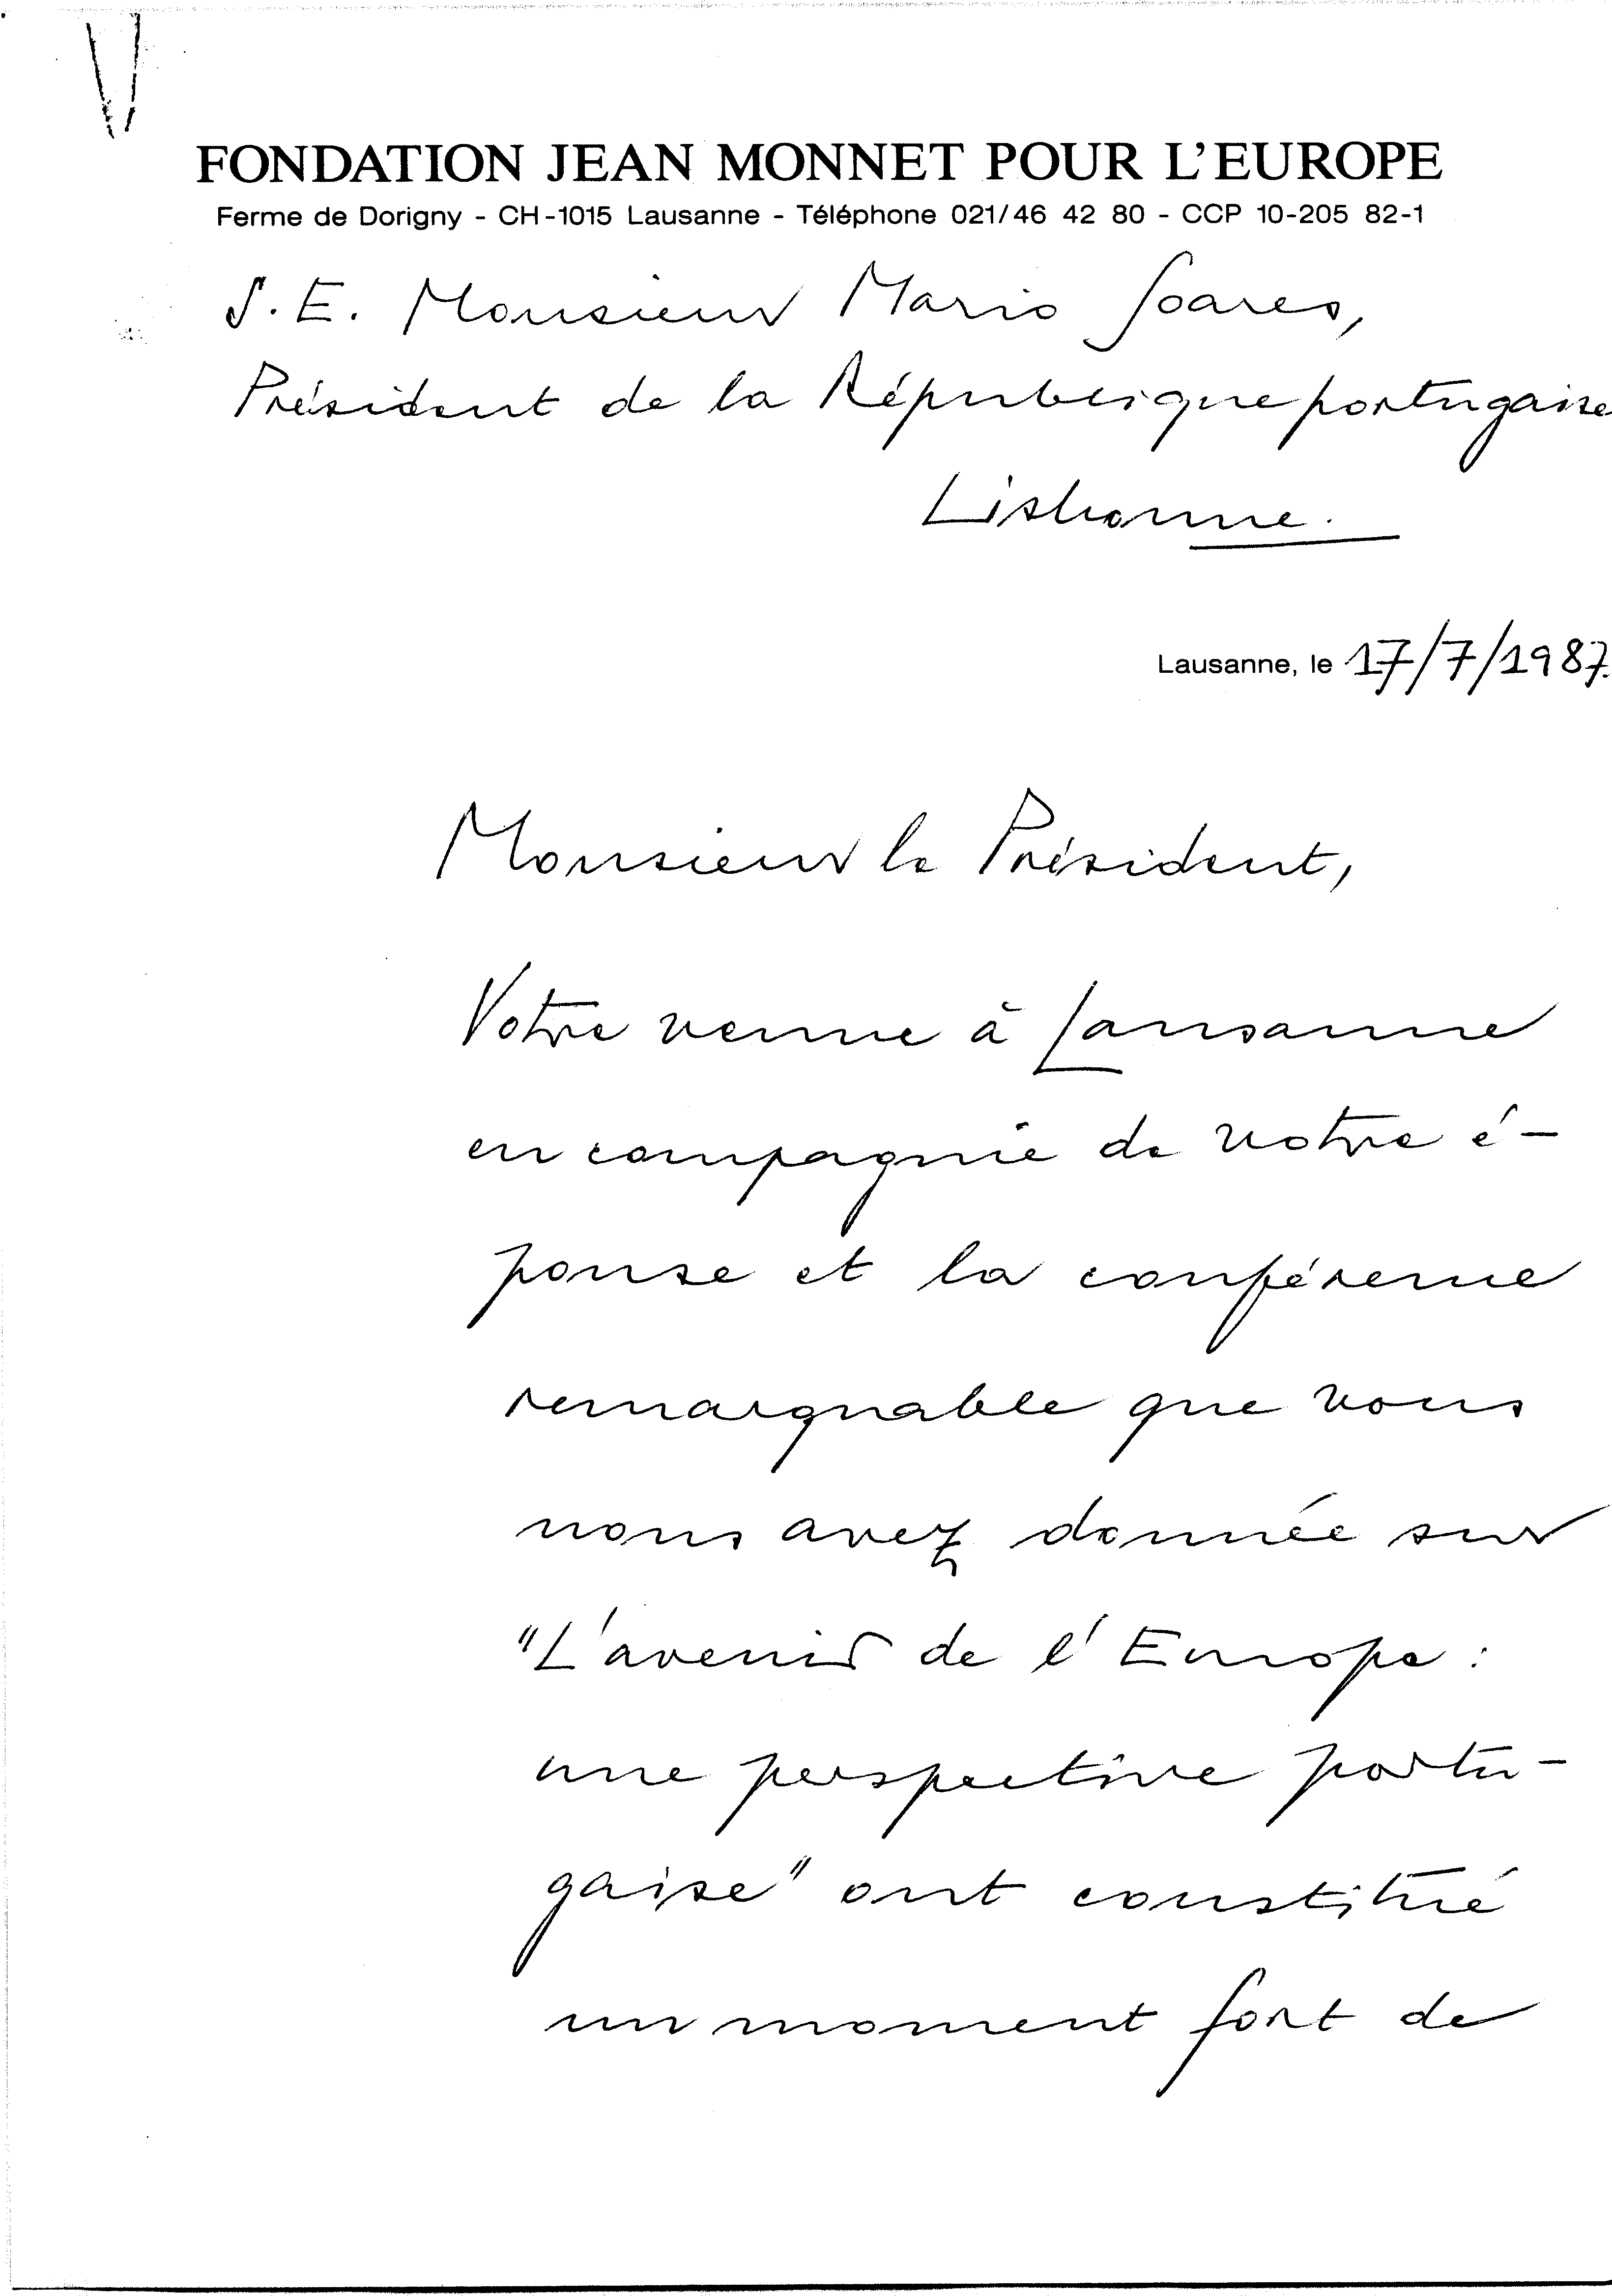 FONDATION JEAN MONNET POUR L'EUROPE
Ferme de Dorigny - CH-1015 Lausanne - Téléphone 021/46 42 80 - CCP 10-205 82-1
S. E. Monsieur Mario Soares,
Président de la République portugaise
Lisbonne.
Lausanne, le 17/7/1987.
Monsieur le Président,
Votre venue à Lausanne
en compagnie de votre é-
pouse et la conférence
remarquable que vous
nous avez donnée sur
"L'avenir de l'Europe :
une perspective portu-
gaise" ont constitué
un moment fort de